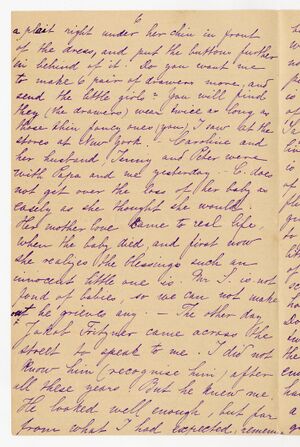 6
a plait right under her chin in front
of the dress, and put the buttons further
in behind of it. Do you want me
to make 6 pair of drawers more, and
send the little girls? You will find
they (the drawers) wear twice as long as
those thin fancy ones (you) I saw at the
stores at New York. — Caroline and
her husband, Jenny and Peter were
with Papa and me yesterday. C. does
not get over the loss of her baby as
easily as she thought she would.
Her mother love came to real life,
when the baby died, and first now
she realizes the blessings such an
innocent little one is. Mr. S. is not
fond of babies, so we can not make
out he grieves any. — The other day
Jakob came across the
street to speak to me. I did not
know him (recognise him) after
all these years. But he knew me.
He looked well enough, but far
from what I had expected, remem-